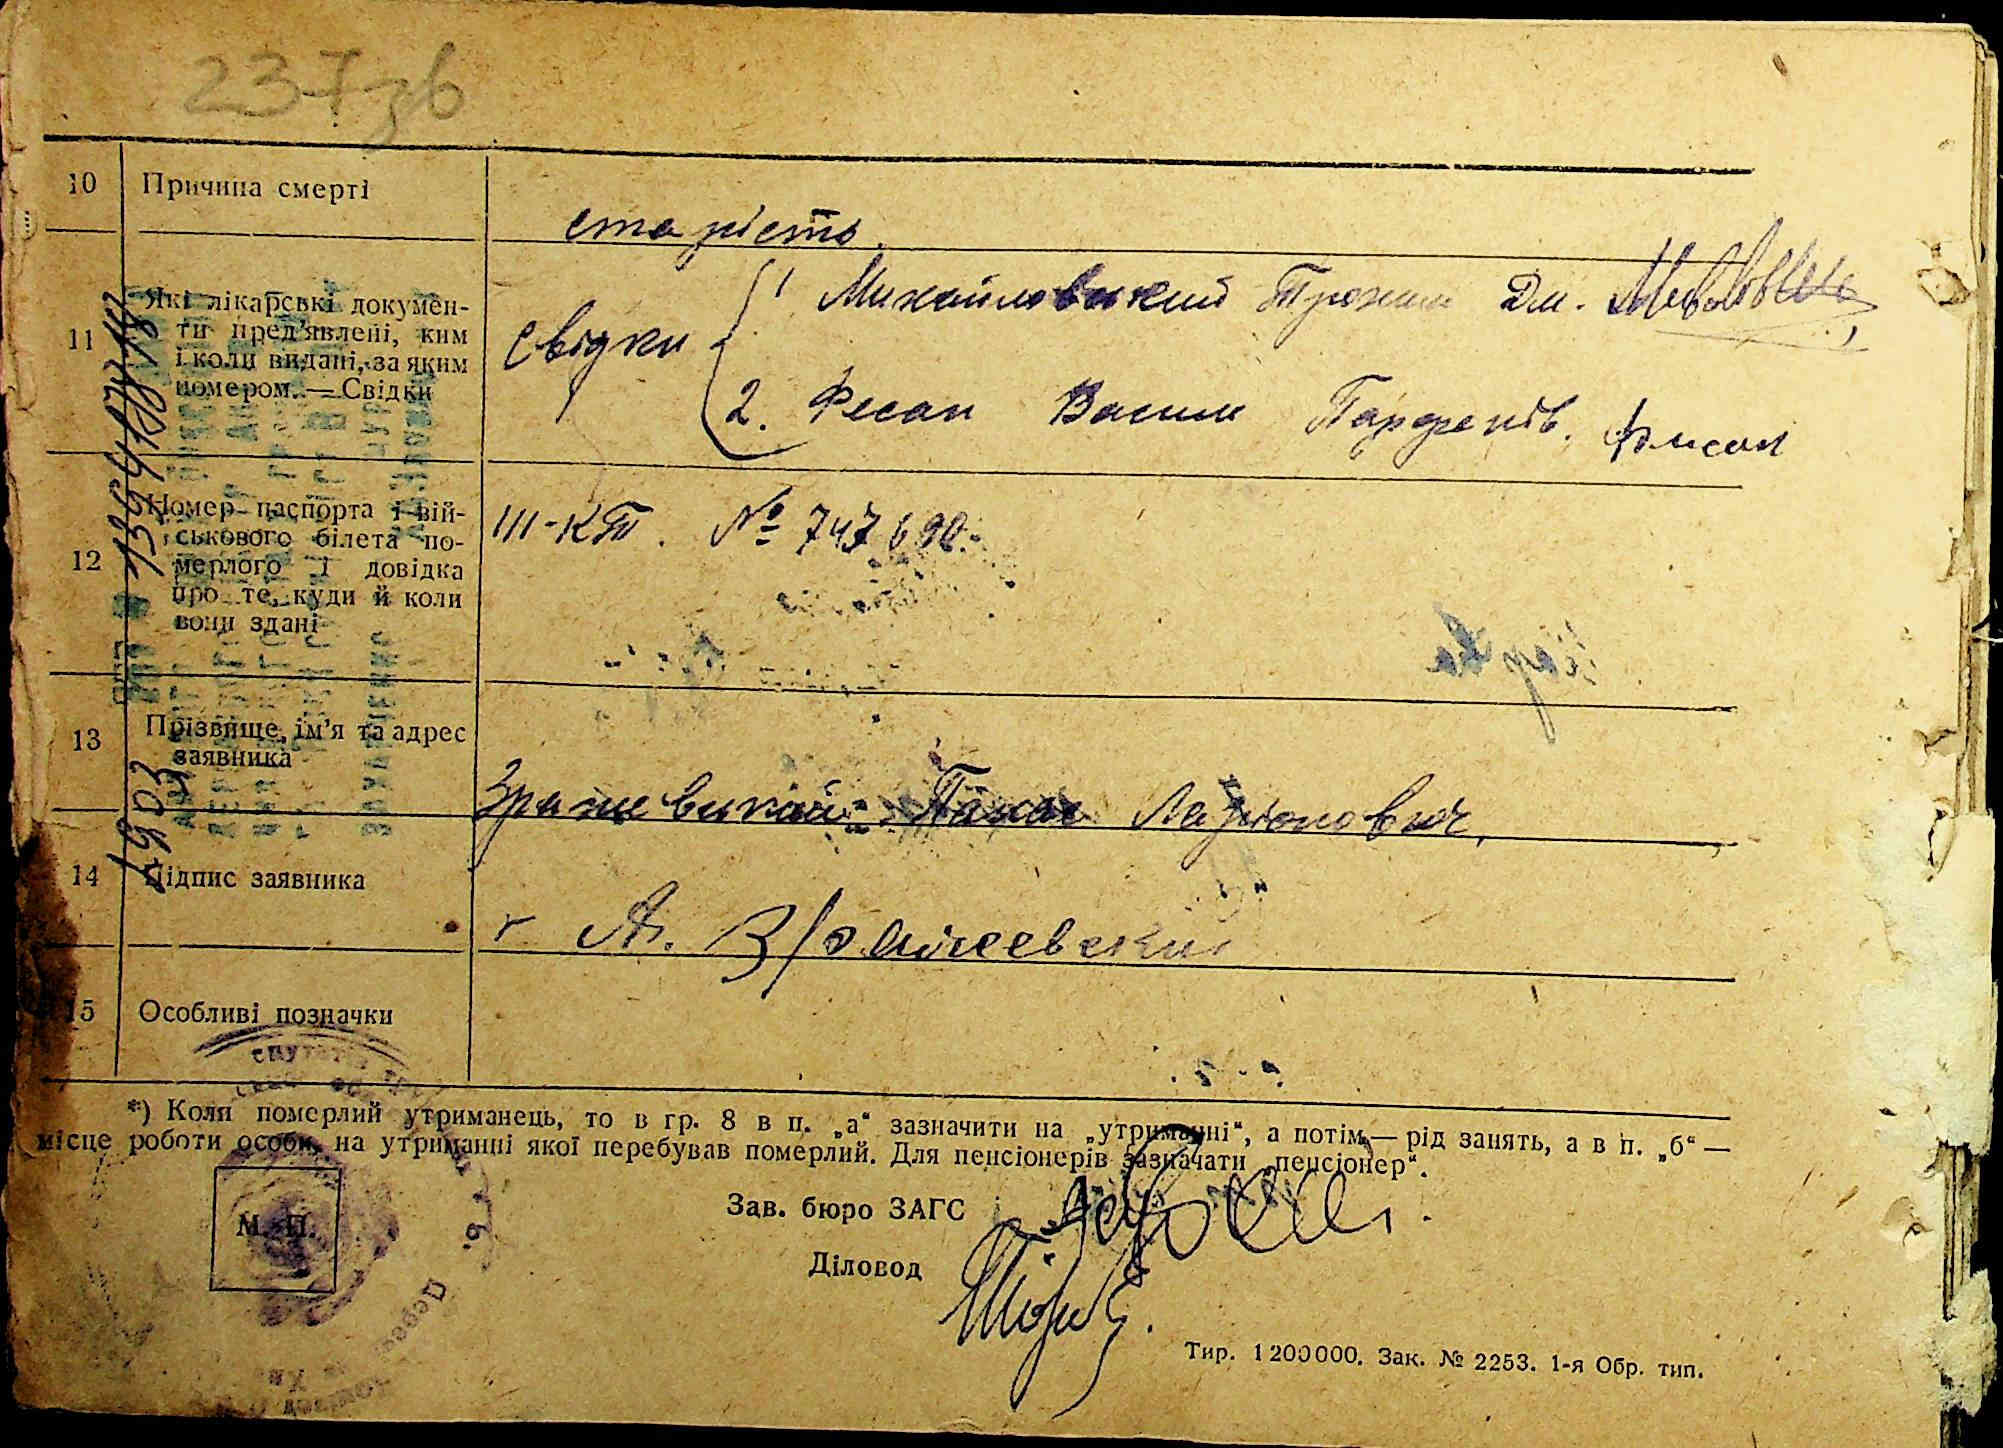 237зв
10 Причина смерті
старість.
11 Які лікарські докумен-
ти пред'явлені, ким
і коли видані, за яким
номером. — Свідки
Свідки
1 Михайловський Трохим Дм.
2. Фесан Василь Парфенів. Фисан
12 Номер паспорта і вій-
ськового білета по-
мерлого і довідка
про те, куди й коли
вони здані
III-КТ. № 747690.-
13 Прізвище, ім'я та адрес
заявника
Зражевский Панас Ларіонович,
14 Підпис заявника
А. Зражевский
15 Особливі позначки
*) Коли померлий утриманець, то в гр. 8 в п. „а" зазначити на „утриманні", а потім — рід занять, а в п. „б" —
місце роботи особи, на утриманні якої перебував померлий. Для пенсіонерів зазначати „пенсіонер".
Зав. бюро ЗАГС
Діловод
М. П.
Тир. 1200000. Зак. № 2253. 1-я Обр. тип.